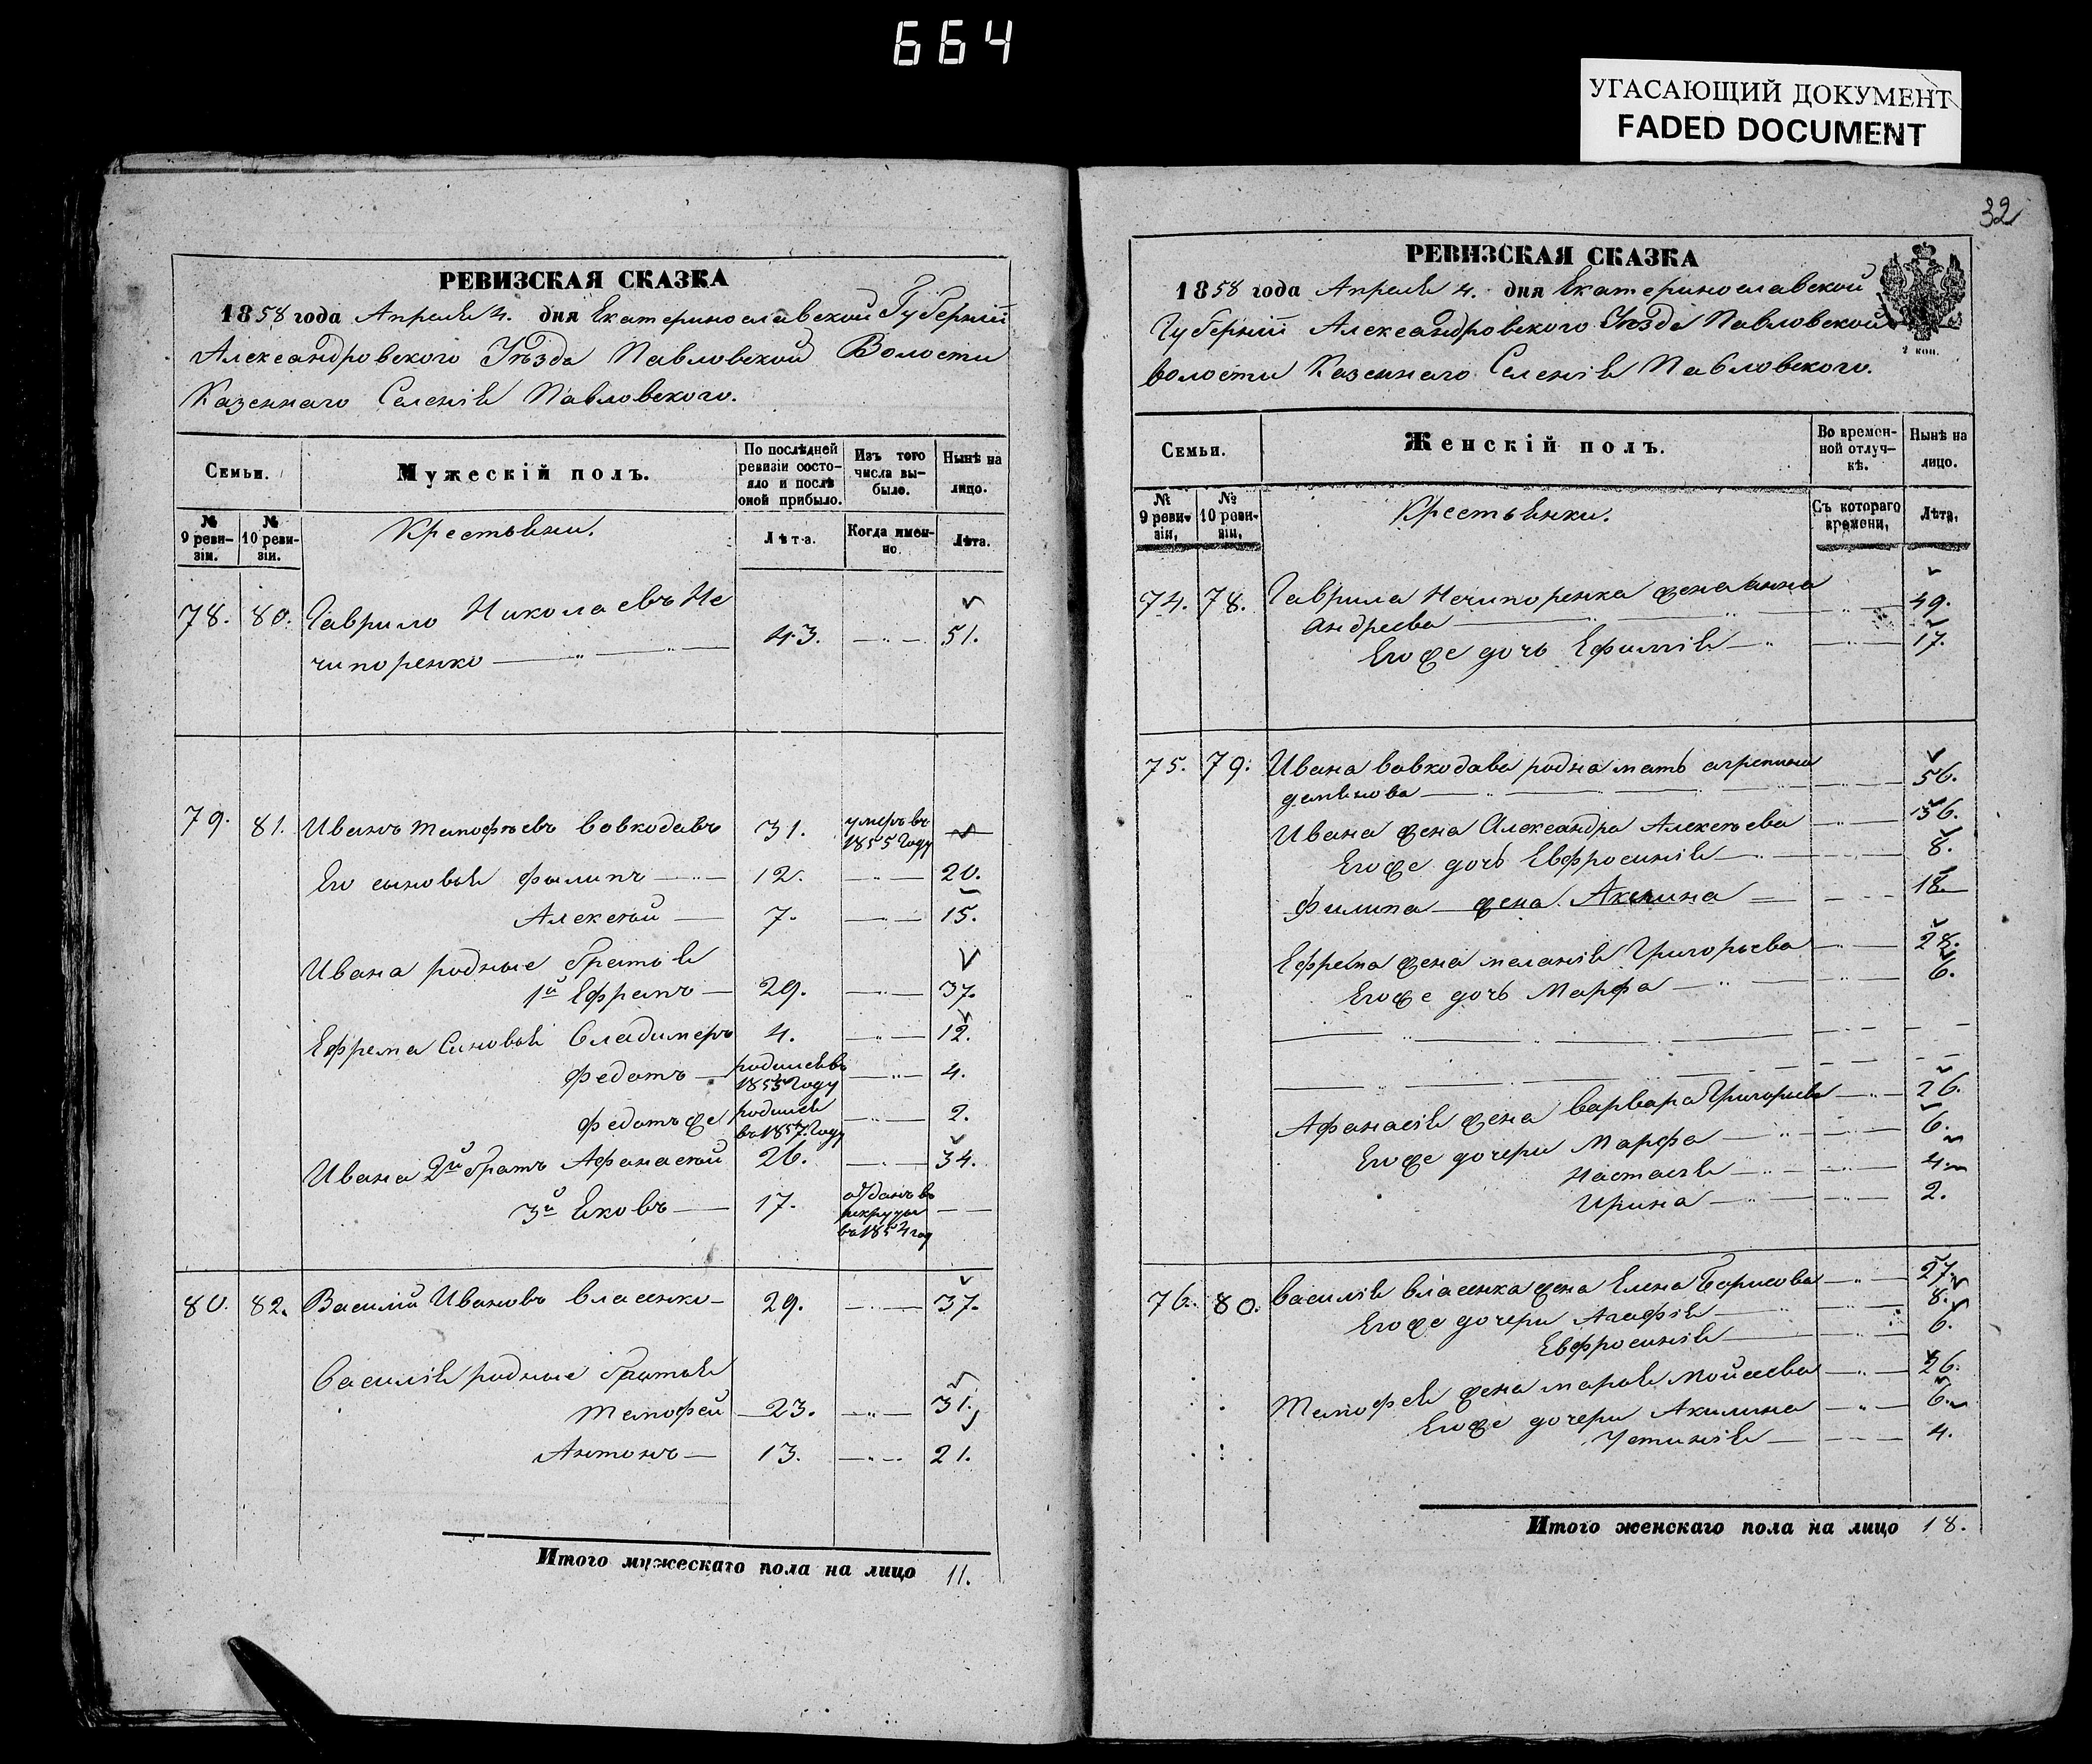 664
УГАСАЮЩИЙ ДОКУМЕНТ
FADED DOCUMENT
РЕВИЗСКАЯ СКАЗКА
1858 года Апреля 4. дня Екатеринославской Губернiи
Александровского Уѣзда Павловской Волости
Казеннаго Селенiя Павловского.
Семьи.
Мужескiй полъ.
По послѣдней ревизiи состояло и послѣ оной прибыло.
Изъ того числа выбыло.
Нынѣ на лицо.
№ 9 ревизiи.
№ 10 ревизiи.
Крестьяни.
Лѣта.
Когда именно.
Лѣта.
78. 80. Гаврило Николаевъ Не
чипоренко 43. 51.
79. 81. Иванъ Тимофѣевъ Вовкодавъ 31. умеръ въ 1855 Году
Его сыновья Филипъ 12. 20.
Алексѣй 7. 15.
Ивана родные братья
1й Ефремъ 29. 37.
Ефрема Синовья Владимеръ 4. 12.
Федотъ родился въ 1855 Году 4.
Федотъ же родился въ 1857 Году 2.
Ивана 2й братъ Афанасiй 26. 34.
3й Яковъ 17. отданъ въ рекруты въ 1854 год
80. 82. Василiй Ивановъ Власенко 29. 37.
Василiя родные братья
Тимофей 23. 31.
Антонъ 13. 21.
Итого мужескаго пола на лицо 11.
32
РЕВИЗСКАЯ СКАЗКА
1858 года Апреля 4. дня Екатеринославской
Губернiи Александровского Уѣзда Павловской
волости Казеннаго Селенiя Павловского.
2 коп.
Семьи.
Женскiй полъ.
Во временной отлучкѣ.
Нынѣ на лицо.
№ 9 ревизiи,
№ 10 ревизiи,
Крестьянки.
Съ котораго времени,
Лѣта,
74. 78. Гаврила Нечипоренка жена анна
андреева 49.
Его же дочь Ефимiя 17.
75. 79. Ивана вовкодава родна мать агрепина
демянова 56.
Ивана жена Александра Алексѣева 36.
Его же дочь Евфросинiя 8.
Филипа жена Акилина 18
Ефрема жена меланiя Григорьева 28.
Его же дочь Марфа 6.
Афанасiя жена варвара Григорьева 26.
Его же дочери Марфа 6.
Настасiя 4.
Ирина 2.
76. 80. Василiя Власенка жена Елена Борисова 27.
Его же дочери Агафiя 8.
Евфросинiя 6.
Тимофея жена марья Мойсеева 26.
Его же дочери Акилина 6.
Устинiя 4.
Итого женскаго пола на лицо 18.